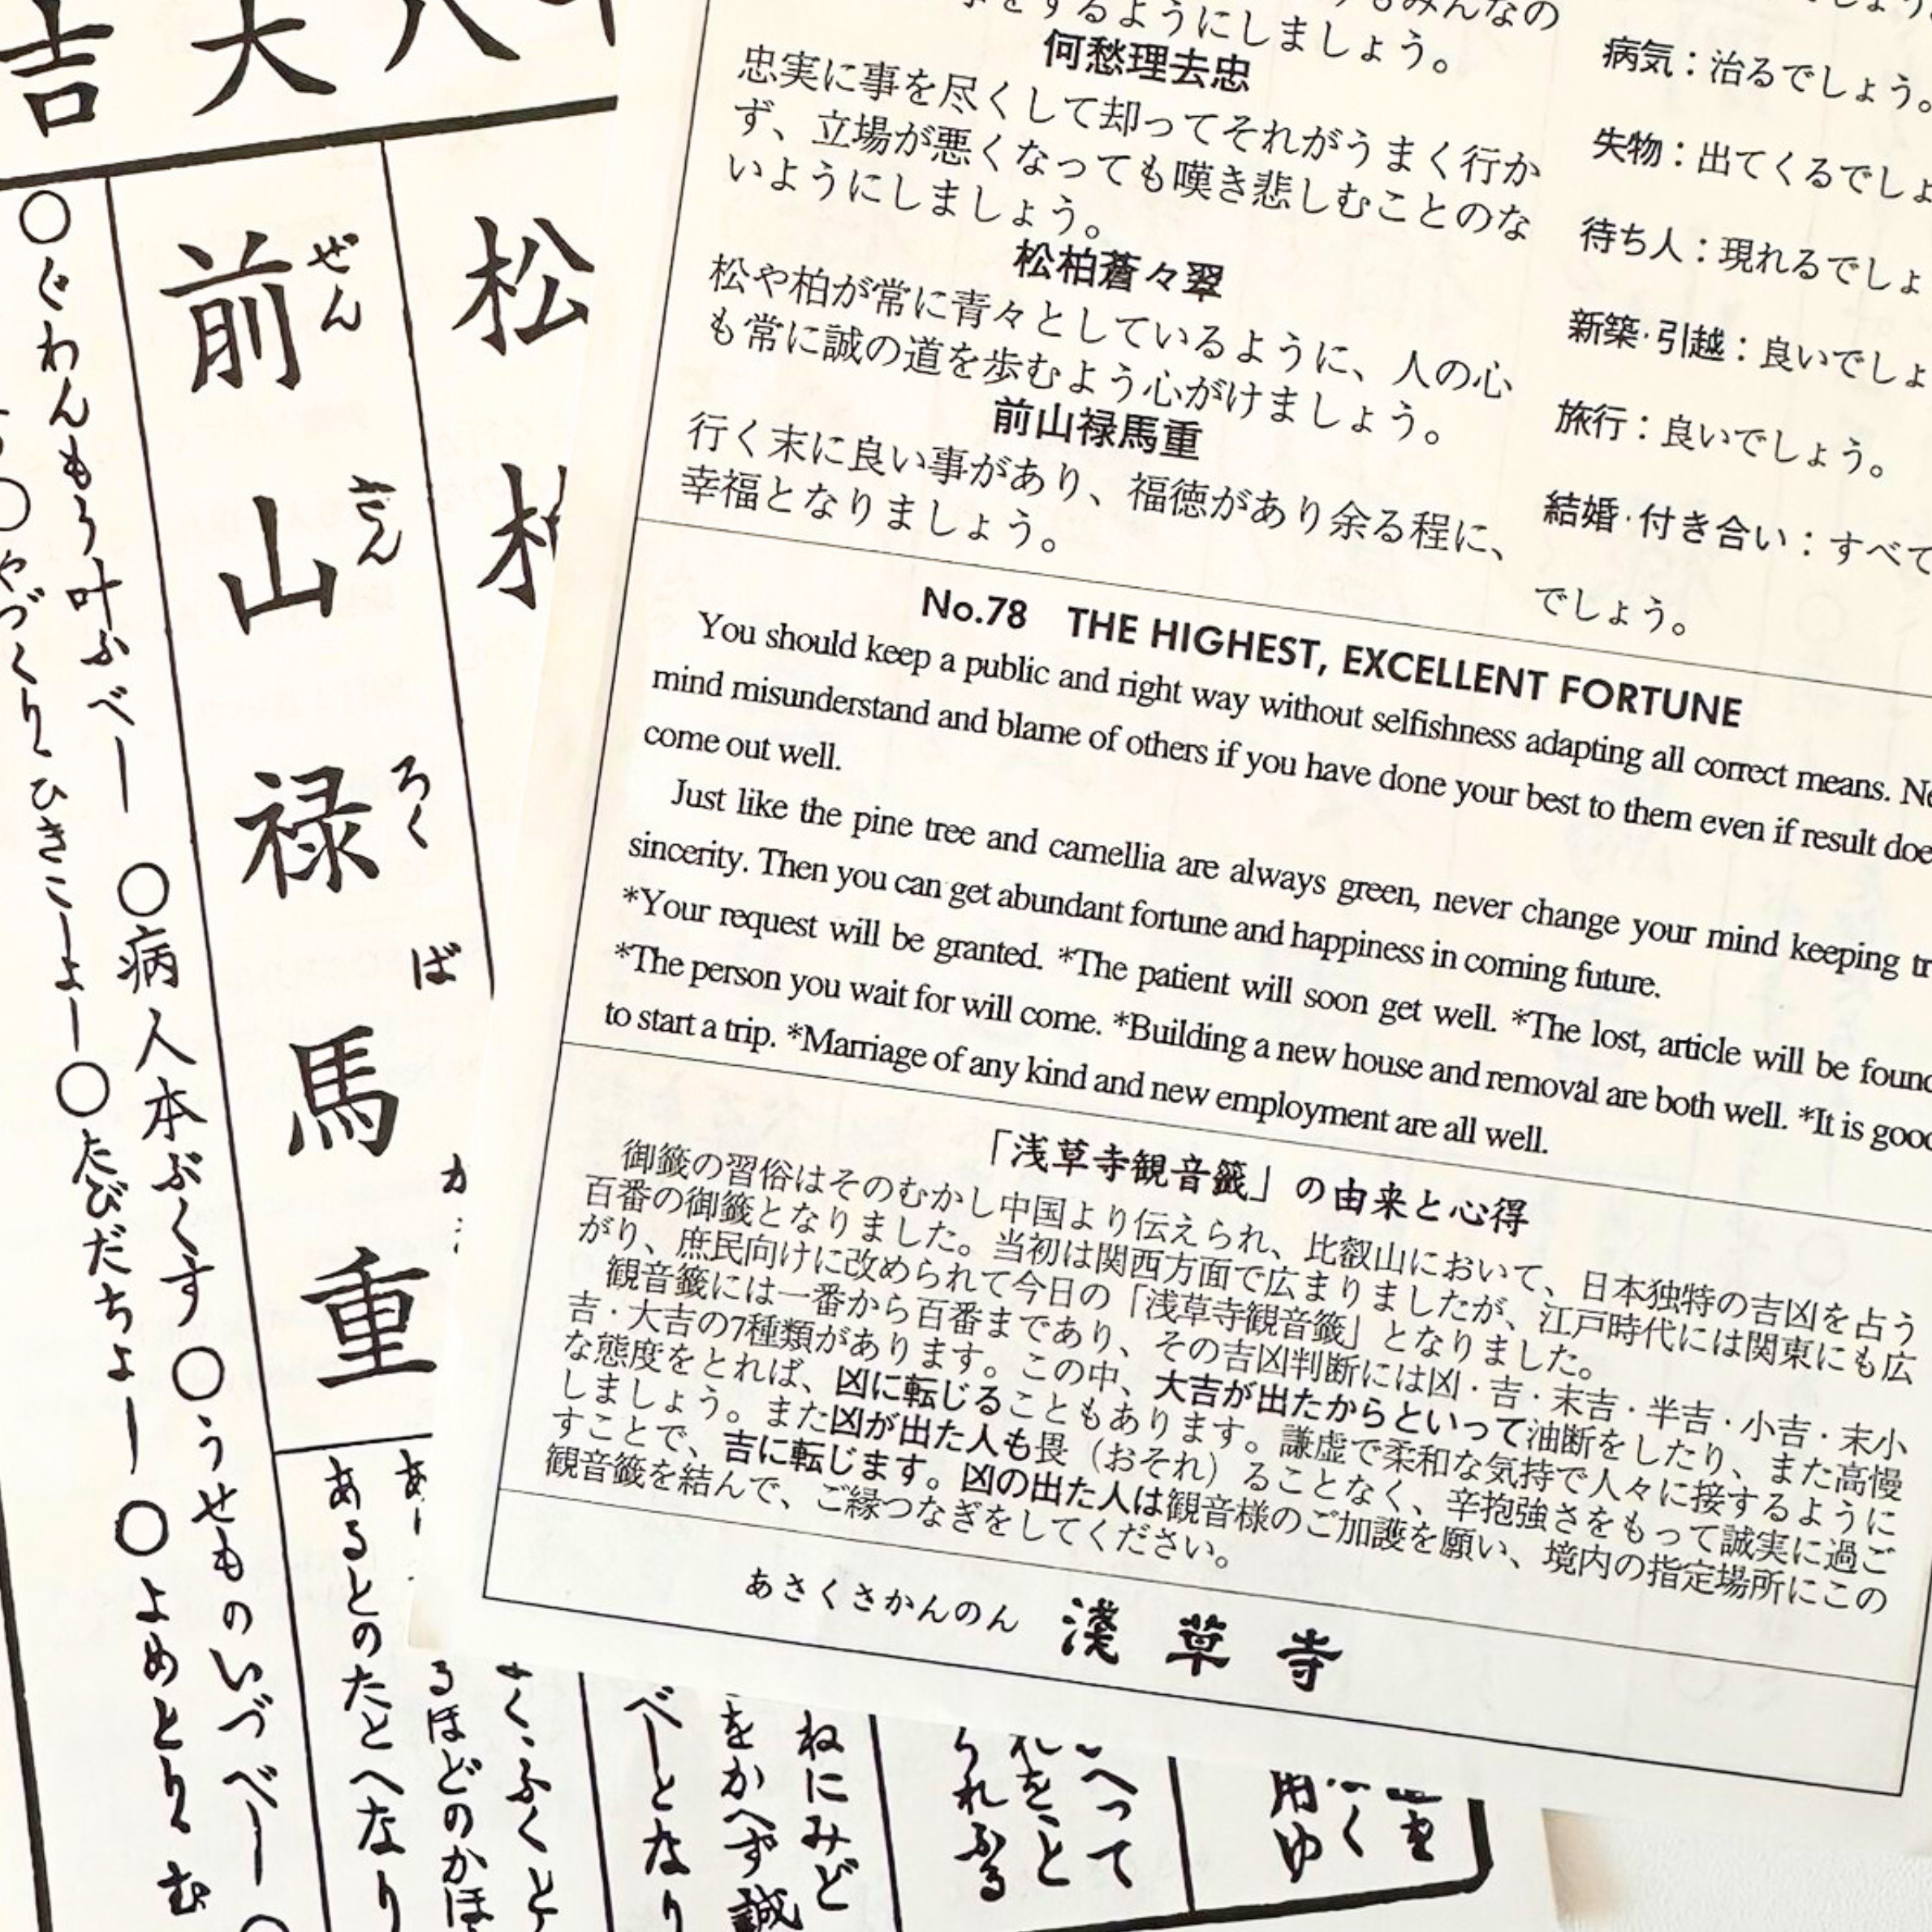 吉大八
松柏
前山禄馬重
ぜんさんろくば
○ぐわんもう叶ふべし ○病人本ぶくす ○うせものいづべし
○やづくりひきこしよし○たびだちよし ○よめとりむ
あるとのたとへなり
るほどのかほ
く、ふくと
べしとなり
をかへず誠
ねにみど
みんなの
をするようにしましょう。
何愁理去忠
忠実に事を尽くして却ってそれがうまく行か
ず、立場が悪くなっても嘆き悲しむことのな
いようにしましょう。
松柏蒼々翠
松や柏が常に青々としているように、人の心
も常に誠の道を歩むよう心がけましょう。
前山禄馬重
行く末に良い事があり、福徳があり余る程に、
幸福となりましょう。
病気：治るでしょう。
失物：出てくるでしょ
待ち人：現れるでしょ
新築·引越：良いでしょ
旅行：良いでしょう。
結婚·付き合い：すべて
でしょう。
No.78 THE HIGHEST, EXCELLENT FORTUNE
You should keep a public and right way without selfishness adapting all correct means.
mind misunderstand and blame of others if you have done your best to them even if result doe
come out well.
Just like the pine tree and camellia are always green, never change your mind keeping tr
sincerity. Then you can get abundant fortune and happiness in coming future.
*Your request will be granted. *The patient will soon get well. *The lost, article will be found
*The person you wait for will come. *Building a new house and removal are both well. *It is good
to start a trip. *Marriage of any kind and new employment are all well.
「浅草寺観音籤」の由来と心得
御籤の習俗はそのむかし中国より伝えられ、比叡山において、日本独特の吉凶を占う
百番の御籤となりました。当初は関西方面で広まりましたが、江戸時代には関東にも広
がり、庶民向けに改められて今日の「浅草寺観音籤」となりました。
観音籤には一番から百番まであり、その吉凶判断には凶·吉·末吉·半吉·小吉·末小
吉·大吉の7種類があります。この中、大吉が出たからといって油断をしたり、また高慢
な態度をとれば、凶に転じることもあります。謙虚で柔和な気持で人々に接するように
しましょう。また凶が出た人も畏（おそれ）ることなく、辛抱強さをもって誠実に過ご
すことで、吉に転じます。凶の出た人は観音様のご加護を願い、境内の指定場所にこの
観音籤を結んで、ご縁つなぎをしてください。
あさくさかんのん 浅草寺